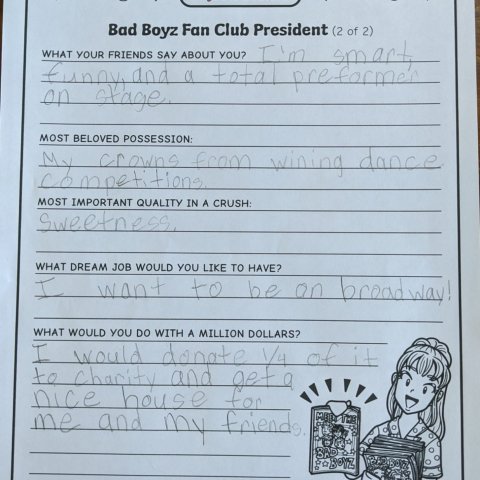 Bad Boyz Fan Club President (2 of 2)
WHAT YOUR FRIENDS SAY ABOUT YOU? I'm smart,
funny, and a total preformer
on stage.
MOST BELOVED POSSESSION:
My crowns from wining dance
competitions.
MOST IMPORTANT QUALITY IN A CRUSH:
Sweetness.
WHAT DREAM JOB WOULD YOU LIKE TO HAVE?
I want to be on broadway!
WHAT WOULD YOU DO WITH A MILLION DOLLARS?
I would donate 1/4 of it
to charity and get a
nice house for
me and my friends.
MEET THE
BAD
BOYZ
BAD
BOYZ